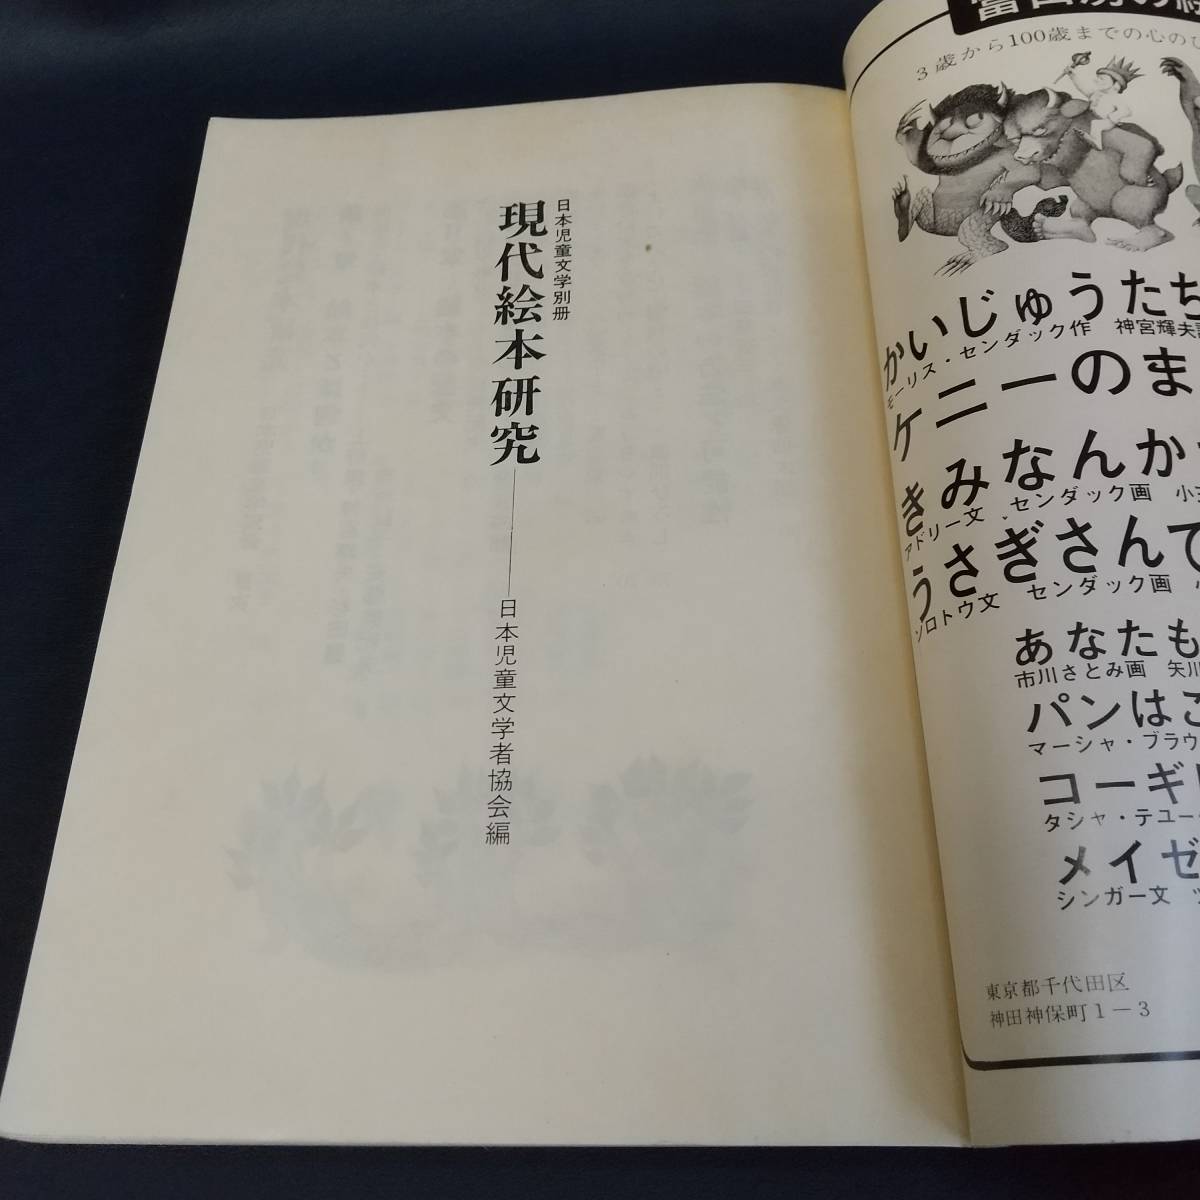 日本児童文学別冊
現代絵本研究
日本児童文学者協会編
3歳から100歳までの心の
かいじゅうたち
モーリス・センダック作 神宮輝夫
ケニーのま
きみなんか
アドリー文 センダック画 小
うさぎさんて
ゾロトウ文 センダック画
あなたも
市川さとみ画 矢川
パンはこ
マーシャ・ブラウ
コーギ
タシャ・テューダ
メイゼ
シンガー文
東京都千代田区
神田神保町1-3